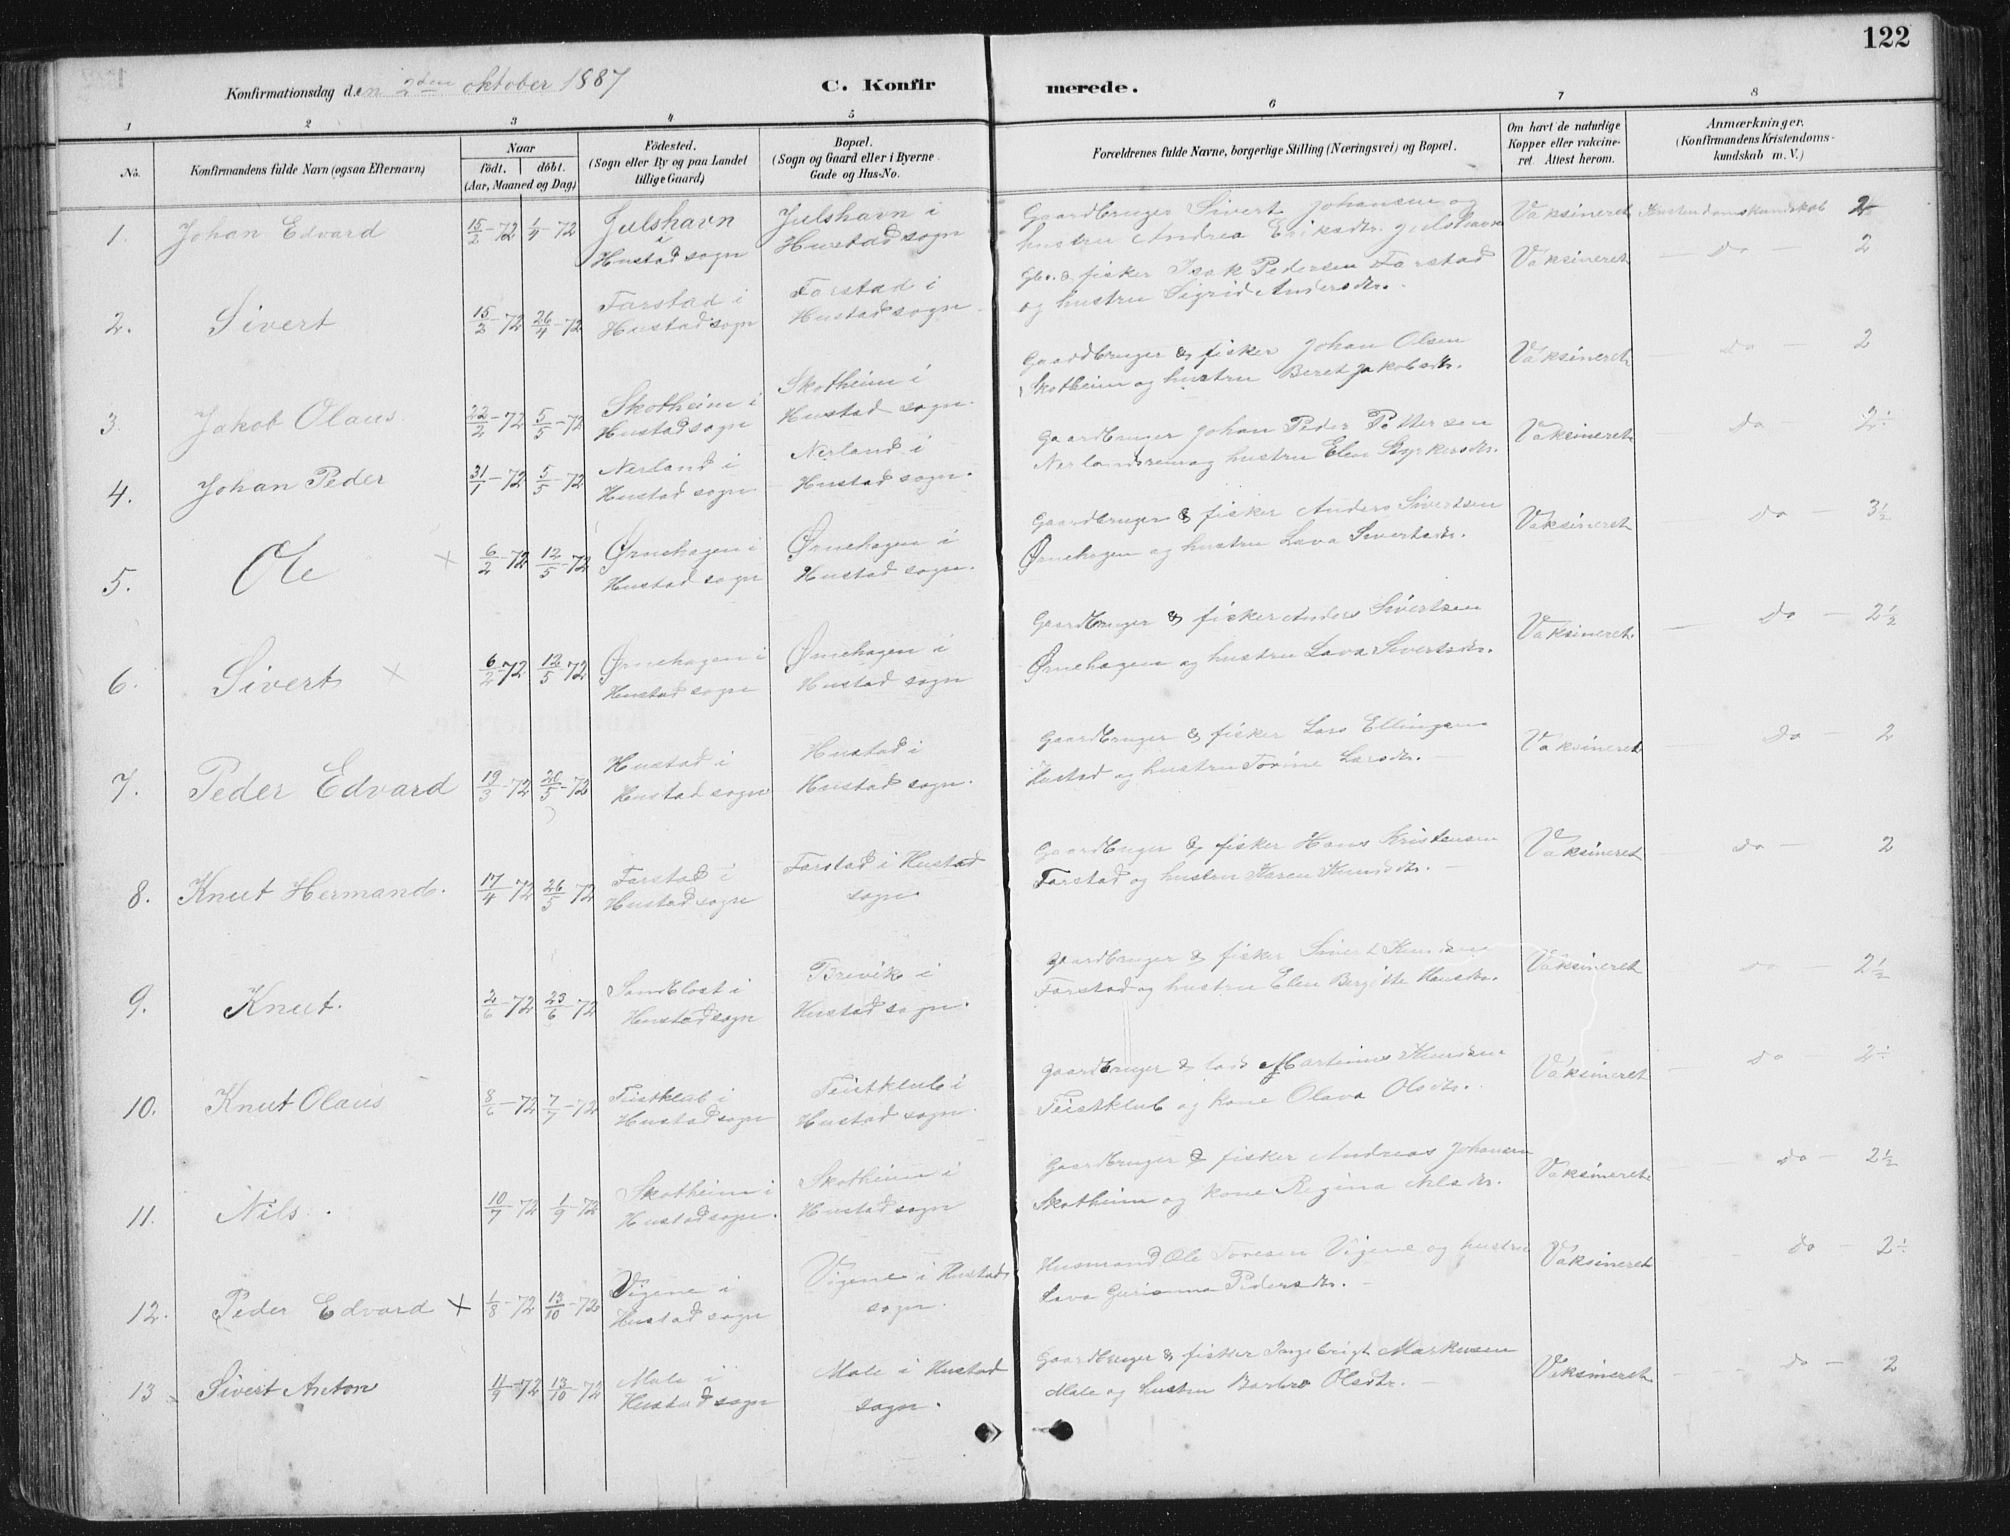 122
Konfirmationsdag den 2den oktober 1887
C. Konfirmerede.
1 2 3 4 5 6 7 8
No.
Konfirmandens fulde Navn (ogsaa Efternavn)
Naar
födt. döbt.
(Aar, Maaned og Dag)
Födested.
(Sogn eller By og paa Landet
tillige Gaard)
Bopæl.
(Sogn og Gaard eller i Byerne
Gade og Hus-No.
Forældrenes fulde Navne, borgerlige Stilling (Næringsvei) og Bopæl.
Om havt de naturlige
Kopper eller vakcine-
ret. Attest herom.
Anmærkninger.
(Konfirmandens Kristendoms-
kundskab m. V.)
1. Johan Edvard 15/2-72 1/4-72 Julshavn i Hustad sogn Julshavn i Hustad sogn
Gaardbruger Sivert Johansen og
hustru Andrea Eriksdtr. Julshavn
Vaksineret Kristendomskundskab 2
2. Sivert 15/2-72 26/4-72 Farstad i Hustad sogn Farstad i Hustad sogn
Gbr. & fisker Isak Pedersen Farstad
og hustru Sigrid Andersdtr.
Vaksineret — do — 2
3. Jakob Olaus 22/2-72 5/5-72 Skotheim i Hustad sogn Skotheim i Hustad sogn.
Gaardbruger & fisker Johan Olsen
Skotheim og hustru Beret Jakobsdtr.
Vaksineret — do — 2
4. Johan Peder 31/1-72 5/5-72 Nerland i Hustad sogn Nerland i Hustad sogn.
Gaardbruger Johan Peder Pettersen
og hustru Elen
Vaksineret — do — 2½
5. Ole x 6/2-72 12/5-72 Ørnehagen i Hustad sogn Ørnehagen i Hustad sogn.
Gaardbruger & fisker Anders Sivertsen
Ørnehagen og hustru Lava Sivertsdtr.
Vaksineret — do — 3½
6. Sivert x 6/2-72 12/5-72 Ørnehagen i Hustad sogn Ørnehagen i Hustad sogn
Gaardbruger & fisker Anders Sivertsen
Ørnehagen og hustru Lava Sivertsdtr.
Vaksineret. — do — 2½
7. Peder Edvard 19/3-72 20/5-72 Hustad i Hustad sogn Hustad i Hustad sogn.
Gaardbruger & fisker Lars Ellingsen
Hustad og hustru Torine Larsdtr. —
Vaksineret — do — 2
8. Knut Hermand. 17/4-72 26/5-72 Farstad i Hustad sogn Farstad i Hustad sogn.
Gaardbruger & fisker Hans Kristensen
Farstad og hustru Karen Knudsdtr. —
Vaksineret do — 2
9. Knut. 2/6-72 23/6-72 Sandblost i Hustad sogn Brevik i Hustad sogn.
Gaardbruger & fisker Sivert Knudsen
Farstad og hustru Elen Bergitte Hansdtr.
Vaksineret do — 2½
10. Knut Olaus 8/6-72 7/7-72 Teistklub i Hustad sogn Teistklub i Hustad sogn.
Gaardbruger & lods Martinus Knudsen
Teistklub og kone Olava Olsdtr.
Vaksineret — do — 2½
11. Nils. 10/7-72 1/9-72 Skotheim i Hustad sogn. Skotheim i Hustad sogn
Gaardbruger & fisker Andreas Johansen
Skotheim og kone Regina Nilsdtr.
Vaksineret — do — 2½
12. Peder Edvard x 1/8-72 13/10-72 Vigene i Hustad sogn Vigene i Hustad sogn.
Husmand Ole Toresen Vigene og hustru
Lava Gurianna Pedersdtr. —
Vaksineret — do — 2½
13 Sivert Anton 11/9-72 13/10-72 Male i Hustad sogn Male i Hustad sogn.
Gaardbruger & fisker Ingebrigt Markusen
Male og hustru Barbro Olsdtr. —
Vaksineret — do — 2